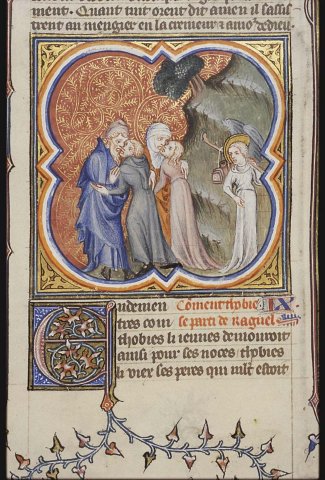 ment. Quant tuit orent dit amen il sassis
trent au mengier en la cremeur & amor de dieu.
Coment thobie IX
se parti de Raguel
Endemen
tres com
thobies li ieunes demouroit
ainsi pour ses noces thobies
li viex ses peres qui mlt estoit